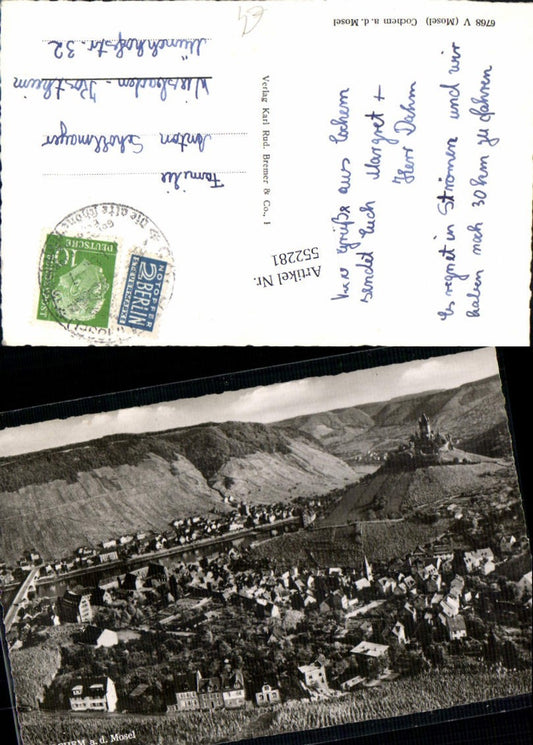 6768 V (Mosel) Cochem a. d. Mosel
Es regnet in Strömen und wir
haben noch 30 km zu fahren
Herr Dahm
sendet Euch Margret +
Grüße aus Cochem
Verlag Karl Rud. Bremer & Co., 1
Familie
Anton Schollmayer
Wiesbaden - Kostheim
Münchhofstr. 32
DEUTSCHE
10
NOTOPFER
2 BERLIN
STEUERMARKE
Artikel Nr.
552281
a. d. Mosel